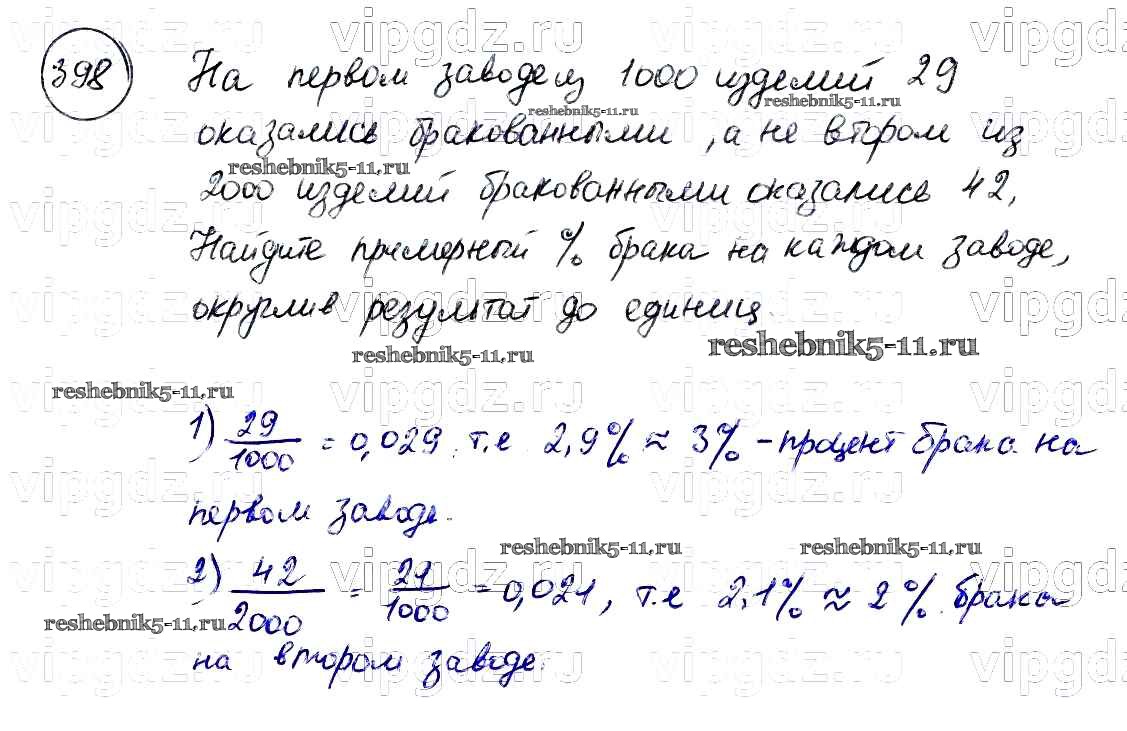 398 На первом заводе из 1000 изделий 29
оказались бракованными, а не втором из
2000 изделий бракованными оказались 42,
Найдите примерный % брака на каждом заводе,
округлив результат до единиц.
1) 29/1000 = 0,029 т.е 2,9% ≈ 3% - процент брака на
первом заводе.
2) 42/2000 = 21/1000 = 0,021, т.е 2,1% ≈ 2% брака
на втором заводе.
vipgdz.ru
reshebnik5-11.ru